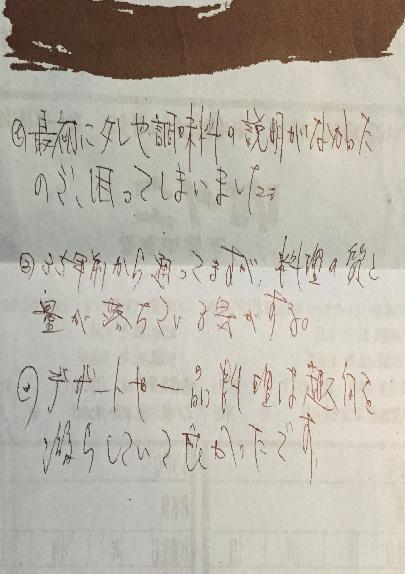 最初にタレや調味料の説明がなかった
ので、困ってしまいました。
年前から通ってますが、料理の質と
量が落ちている気がする。
デザートや一品料理は趣向を
凝らしていて良かったです。